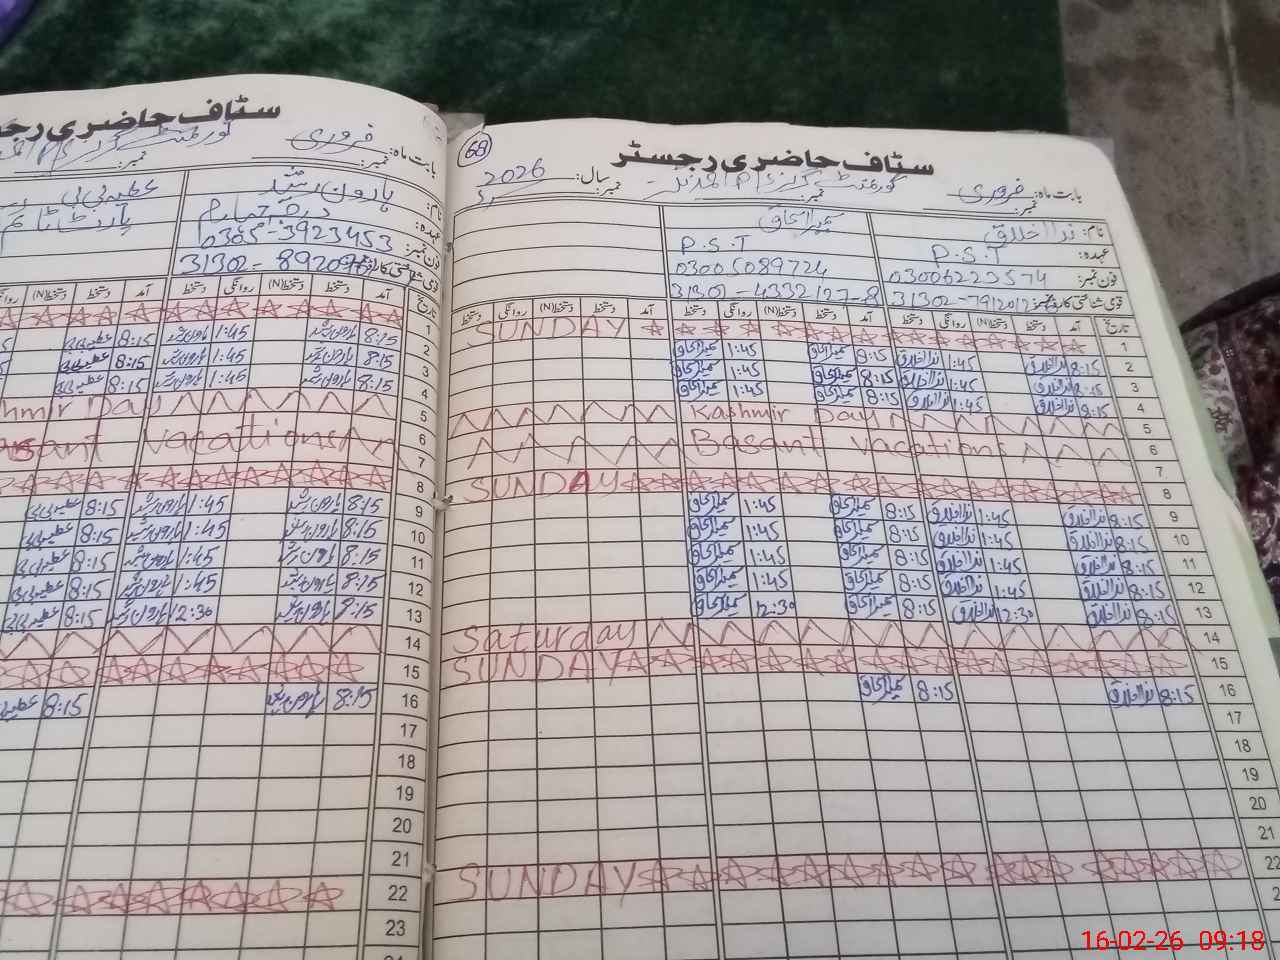 سٹاف حاضری رجسٹر
بابت ماہ: فروری
نمبر:
نام: ہارون رشید
عہدہ: درجہ چہارم
فون نمبر: 0305-3923453
31302-
عطیہ بی بی
پارٹ ٹائم
تاریخ آمد دستخط دستخط(N) روانگی دستخط آمد دستخط دستخط(N)
1
2 8:15 ہارون رشید 1:45 ہارون رشید 8:15 عطیہ بی بی
3 8:15 ہارون رشید 1:45 ہارون رشید 8:15 عطیہ بی بی
4 8:15 ہارون رشید 1:45 ہارون رشید 8:15 عطیہ بی بی
5 hmir Day
6 asant vacations
7
8
9 8:15 ہارون رشید 1:45 ہارون رشید 8:15 عطیہ بی بی
10 8:15 ہارون رشید 1:45 ہارون رشید 8:15 عطیہ بی بی
11 8:15 ہارون رشید 1:45 ہارون رشید 8:15 عطیہ بی بی
12 8:15 ہارون رشید 1:45 ہارون رشید 8:15 عطیہ بی بی
13 8:15 ہارون رشید 12:30 ہارون رشید 8:15 عطیہ بی بی
14
15
16 8:15 ہارون رشید 8:15
17
18
19
20
21
22
23
68
سٹاف حاضری رجسٹر
بابت ماہ: فروری نمبر: گورنمنٹ گرلز سال: 2026 نمبر:
نام: ندا اخلاق سمیرا اسحاق
عہدہ: P.S.T P.S.T
فون نمبر: 03006223574 03005089724
قومی شناختی کارڈ نمبر: 31302- 31301-4332127-8
تاریخ آمد دستخط دستخط(N) روانگی دستخط آمد دستخط دستخط(N) روانگی دستخط آمد دستخط دستخط(N) روانگی دستخط
1 SUNDAY
2 8:15 ندا اخلاق 1:45 ندا اخلاق 8:15 سمیرا اسحاق 1:45 سمیرا اسحاق
3 8:15 ندا اخلاق 1:45 ندا اخلاق 8:15 سمیرا اسحاق 1:45 سمیرا اسحاق
4 8:15 ندا اخلاق 1:45 ندا اخلاق 8:15 سمیرا اسحاق 1:45 سمیرا اسحاق
5 Kashmir Day
6 Basant vacations
7
8 SUNDAY
9 8:15 ندا اخلاق 1:45 ندا اخلاق 8:15 سمیرا اسحاق 1:45 سمیرا اسحاق
10 8:15 ندا اخلاق 1:45 ندا اخلاق 8:15 سمیرا اسحاق 1:45 سمیرا اسحاق
11 8:15 ندا اخلاق 1:45 ندا اخلاق 8:15 سمیرا اسحاق 1:45 سمیرا اسحاق
12 8:15 ندا اخلاق 1:45 ندا اخلاق 8:15 سمیرا اسحاق 1:45 سمیرا اسحاق
13 8:15 ندا اخلاق 12:30 ندا اخلاق 8:15 سمیرا اسحاق 12:30 سمیرا اسحاق
14 Saturday
15 SUNDAY
16 8:15 ندا اخلاق 8:15 سمیرا اسحاق
17
18
19
20
21
22 SUNDAY
16-02-26 09:18